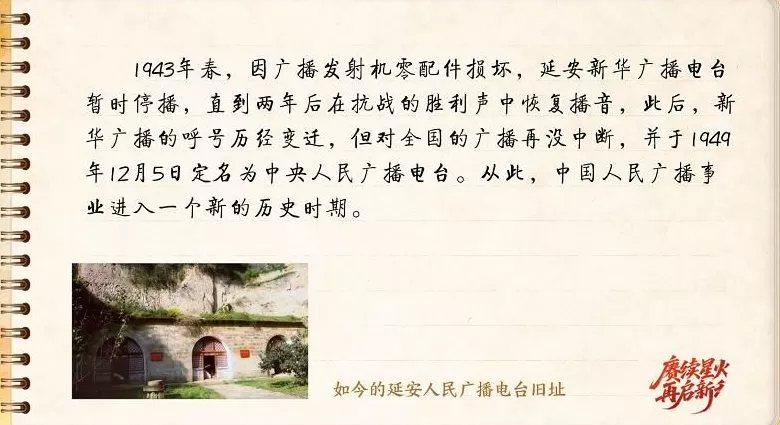 1943年春，因广播发射机零配件损坏，延安新华广播电台
暂时停播，直到两年后在抗战的胜利声中恢复播音，此后，新
华广播的呼号历经变迁，但对全国的广播再没中断，并于1949
年12月5日定名为中央人民广播电台。从此，中国人民广播事
业进入一个新的历史时期。
如今的延安人民广播电台旧址
赓续星火
再启新